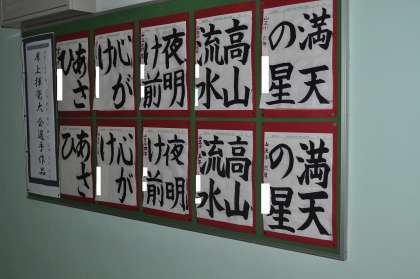 満天
の星
高山
流水
夜明
け前
心が
け
あさ
ひ
満天
の星
高山
流水
夜明
け前
心が
け
あさ
ひ
席上揮毫大会選手作品